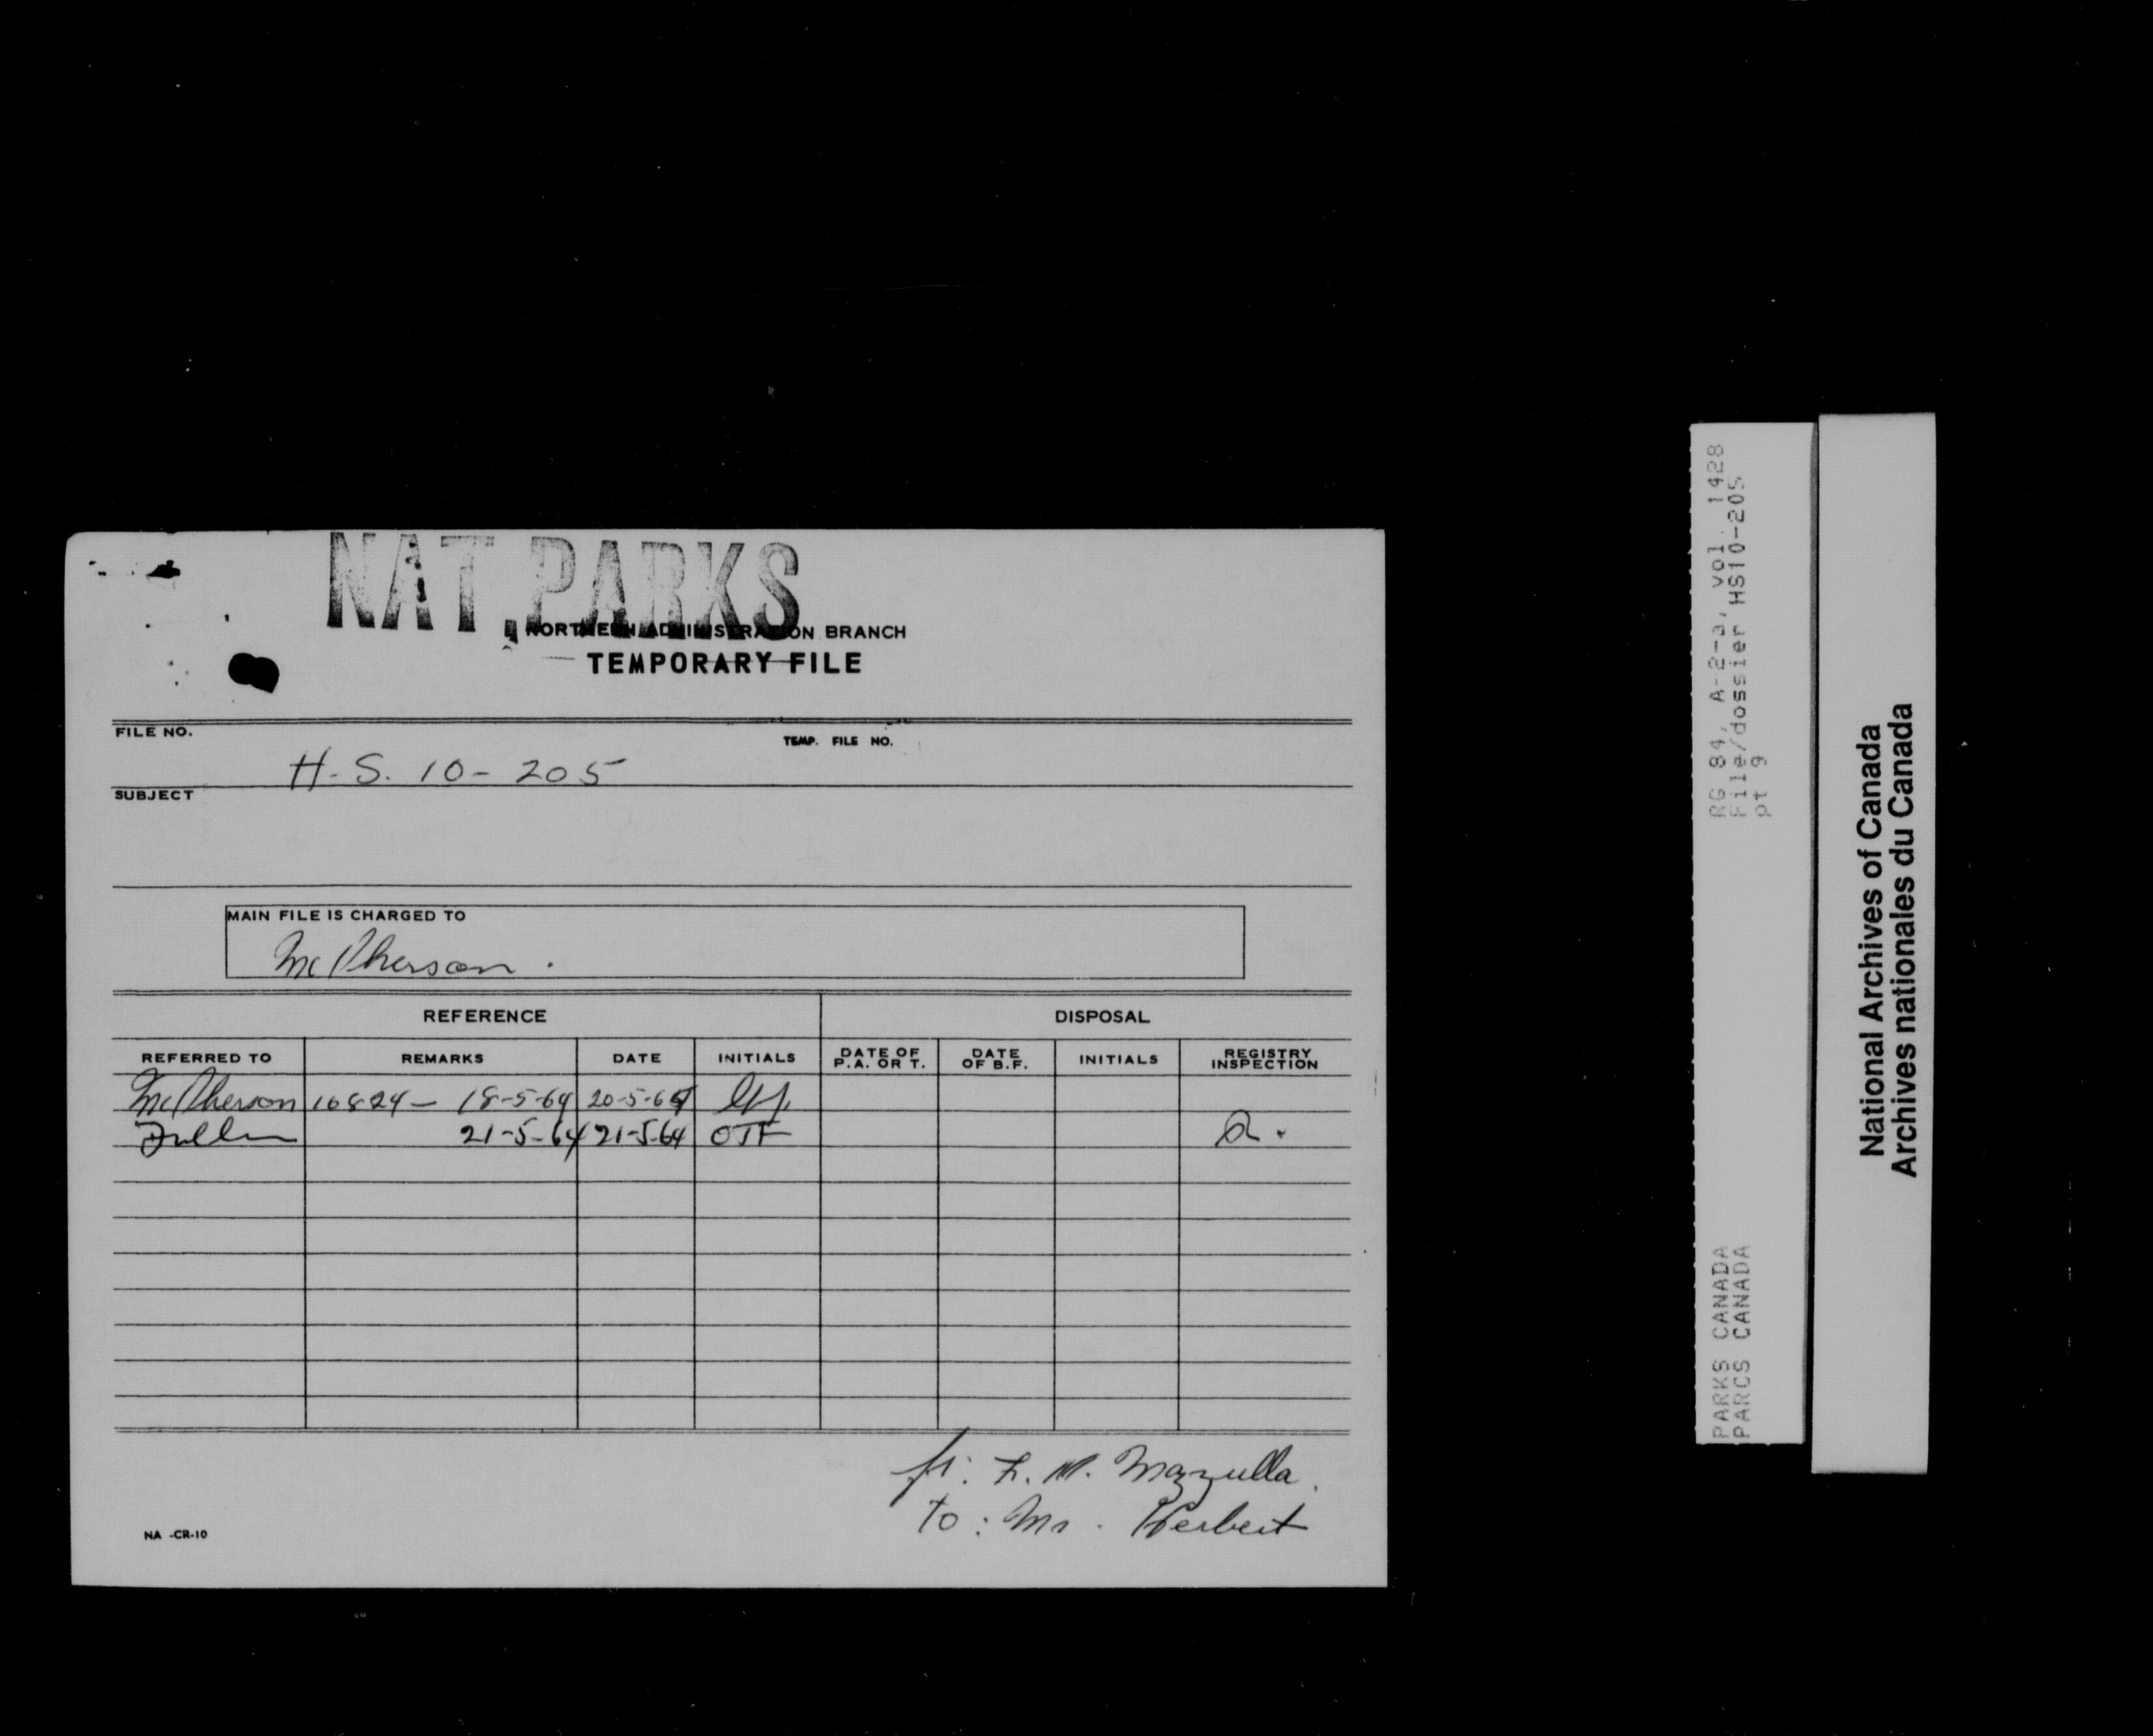 NAT. PARKS
NORTHERN ADMINISTRATION BRANCH
TEMPORARY FILE
FILE NO.
TEMP. FILE NO.
H.S. 10-205
SUBJECT
MAIN FILE IS CHARGED TO
McPherson.
REFERENCE DISPOSAL
REFERRED TO REMARKS DATE INITIALS DATE OF P.A. OR T. DATE OF B.F. INITIALS REGISTRY INSPECTION
McPherson 10824- 18-5-64 20-5-64
21-5-64 21-5-64 OTF
fr: F. M. Mazzulla.
To: Mr. Herbert
NA -CR-10
RG 84, A-2-a, vol. 1428
File/dossier HS10-205
pt 9
PARKS CANADA
PARCS CANADA
National Archives of Canada
Archives nationales du Canada